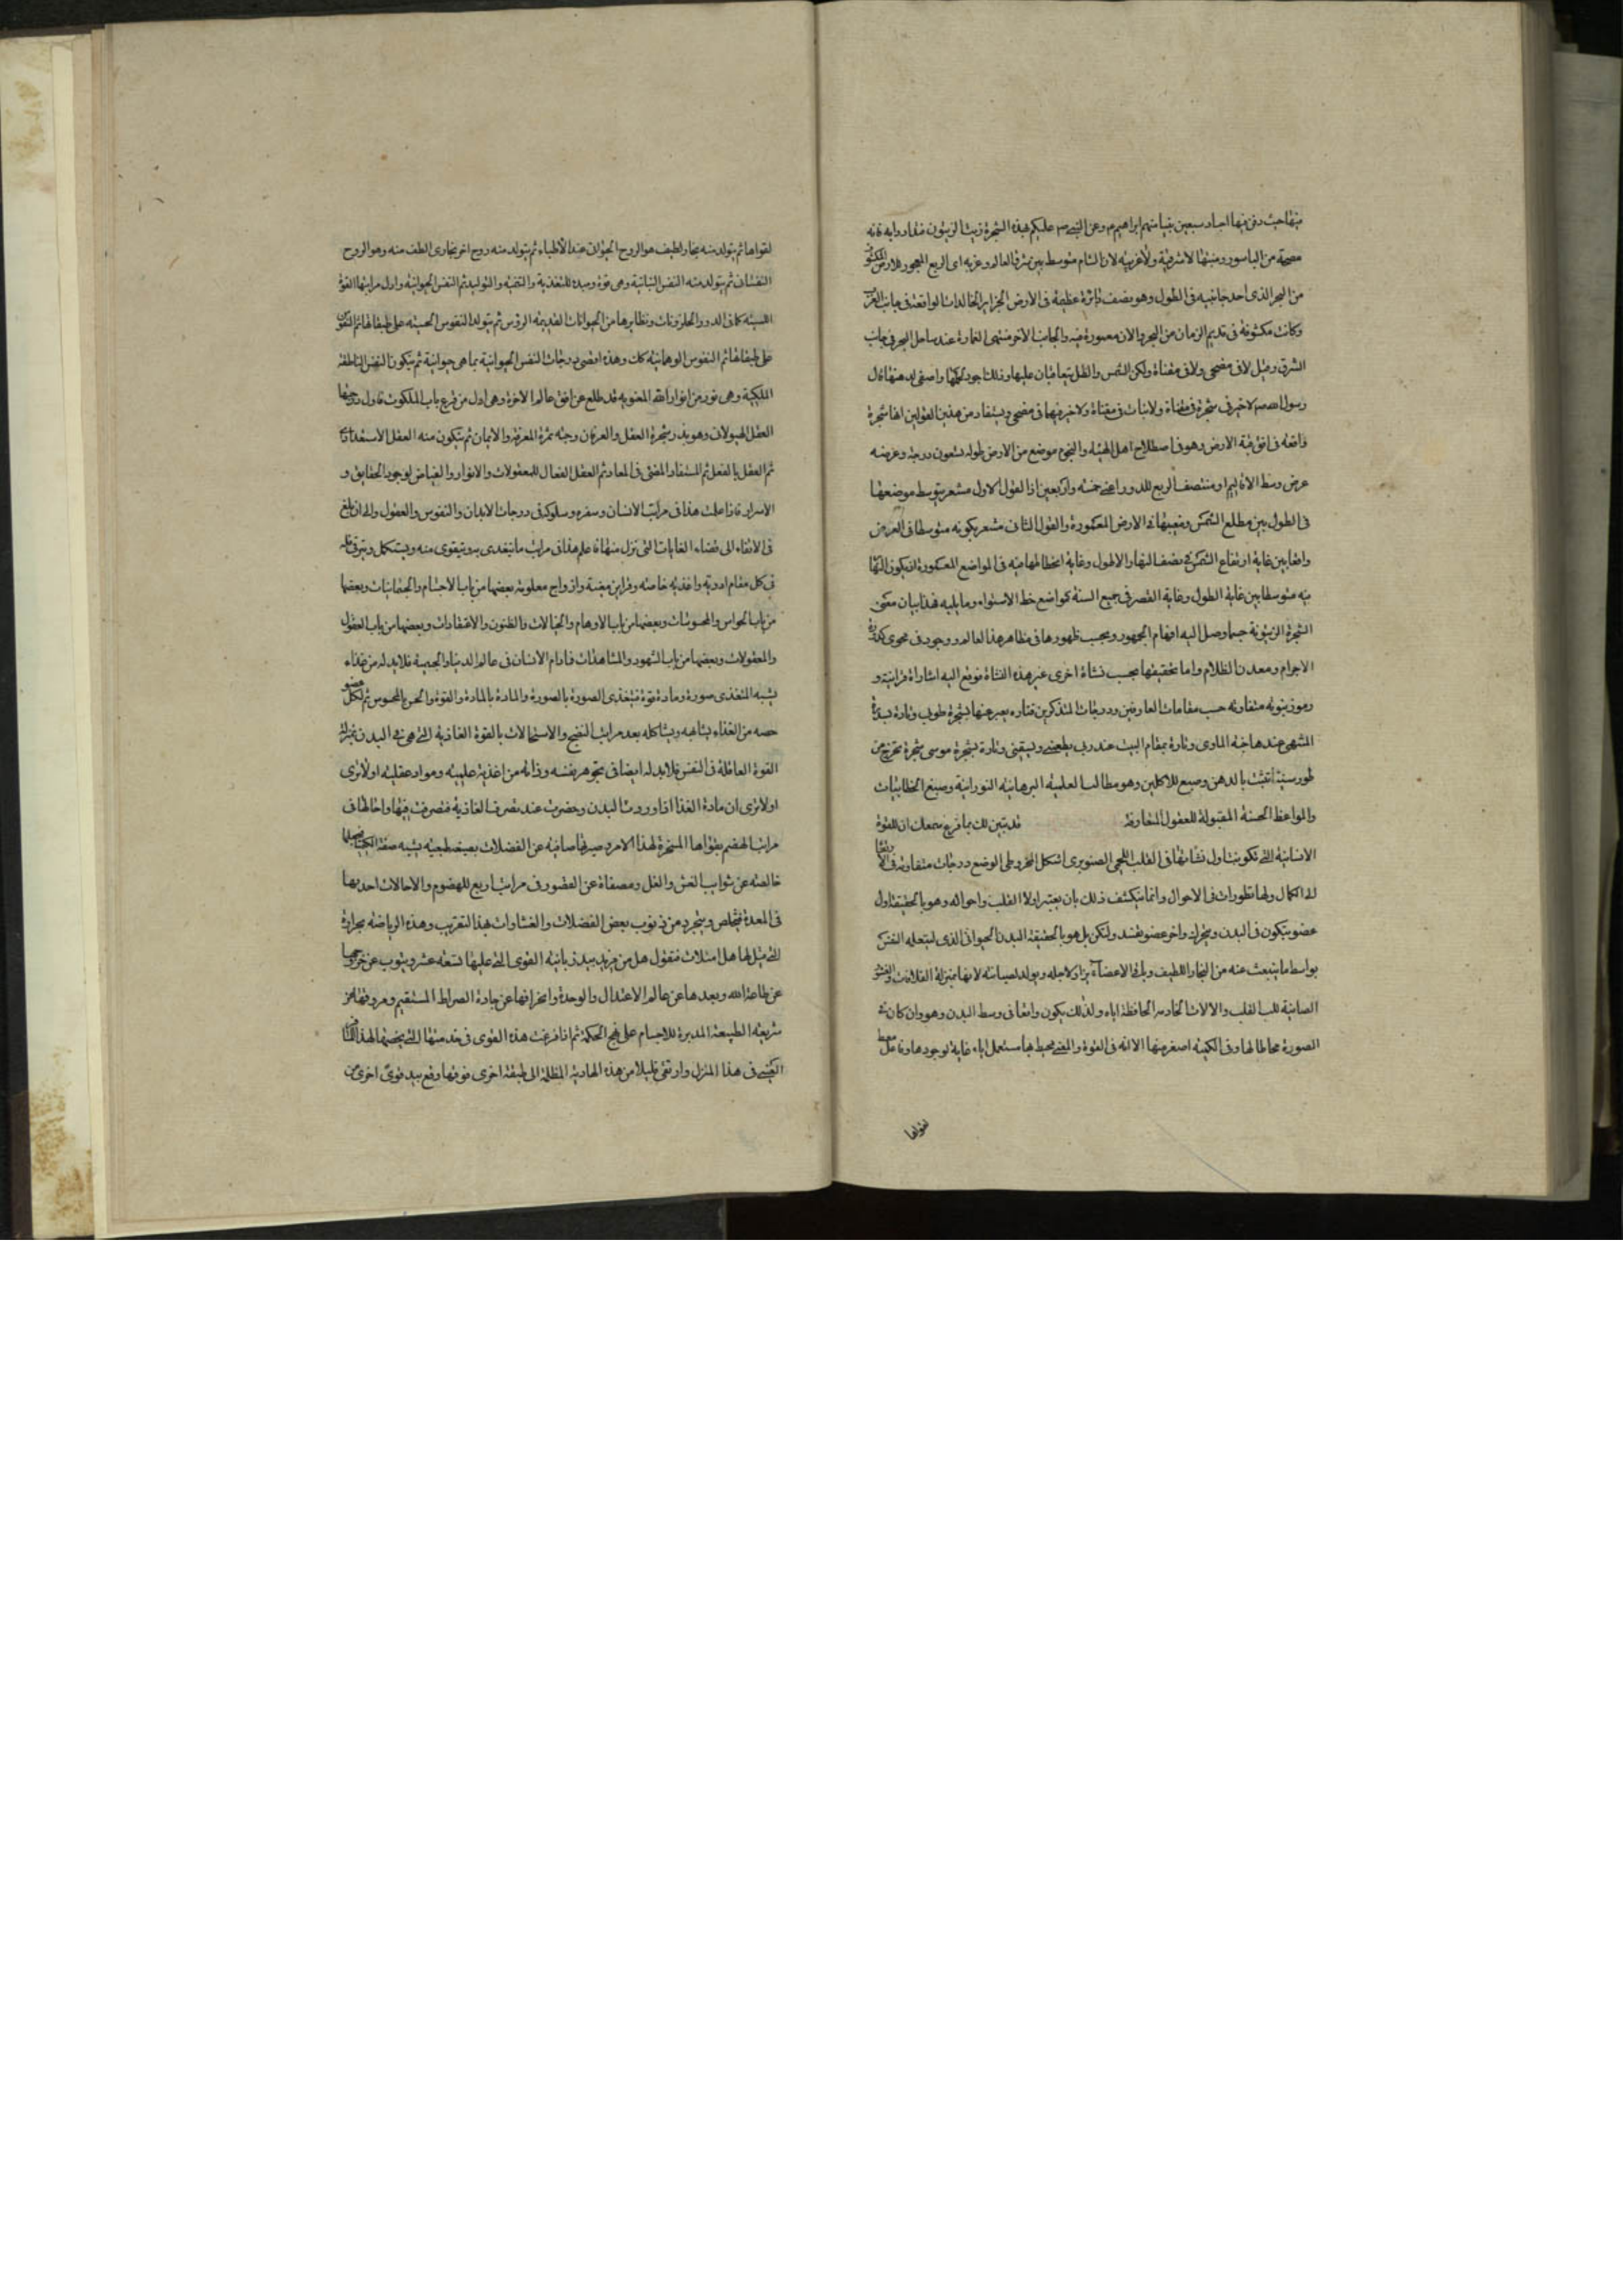 منها حيث دفن فيها اجساد سبعين نبيا منهم ابراهيم م وعن النبي ص عليكم بهذه الشجرة زيت الزيتون فتداووا به فانه
مصحة من الباسور ومنبتها لا شرقية ولا غربية لان الشام متوسط بين شرق العالم وغربه اى الربع المعمور للارض المكشوف
من البحر الذى احد جانبيه فى الطول وهو نصف دائرة عظيمة فى الارض الجزاير الخالدات الواقعة فى جانب الغرب
وكانت مكشوفة فى قديم الزمان من البحر والان معمورة فيه والجانب الاخر منتهى العمارة عند ساحل البحر فى جانب
الشرق وقيل لا فى مضحى ولا فى مقناة ولكن الشمس والظل يتعاقبان عليها وذلك اجود لحملها واصفى لدهنها قال
رسول الله صم لا خير فى شجرة فى مقناة ولا نبات فى مقناة ولا خير فيها فى مضحى ويستفاد من هذين القولين انها شجرة
واقعة فى افق قبة الارض وهو فى اصطلاح اهل الهيئة والنجوم موضع من الارض طوله تسعون درجة وعرضه
عرض وسط الاقاليم او منتصف الربع للدور اعنى خمسة واربعين اذ القول الاول مشعر بتوسط موضعها
فى الطول بين مطلع الشمس ومغيبها فى الارض المعمورة والقول الثانى مشعر بكونه متوسطا فى العرض
واقعا بين غاية ارتفاع الشمس فى نصف النهار الاطول وغاية انحطاطها فيه فى المواضع المعمورة او يكون النهار
فيه متوسطا بين غاية الطول وغاية القصر فى جميع السنة كمواضع خط الاستواء وما يليه فهذا بيان معنى
الشجرة الزيتونة حسبما وصل اليه افهام الجمهور وبحسب ظهورها فى مظاهر هذا العالم ووجود فى محوى كدورة
الاجرام ومعدن الظلام واما تحقيقها بحسب نشاة اخرى غير هذه النشاة فوقع اليه اشاراة قرانية و
رموز نبوية متفاوتة حسب مقامات العارفين ودرجات المتذكرين فتارة يعبر عنها بشجرة طوبى وتارة بسدرة
المنتهى عندها جنة الماوى وتارة بمقام البيت عند ربى يطعمنى ويسقينى وتارة بشجرة موسى شجرة تخرج من
طور سينا تنبت بالدهن وصبغ للاكلين وهو مطالب العلمية البرهانية النورانية وصبغ الخطابيات
والمواعظ الحسنة المقبولة للعقول المتعارفة قد تبين لك بما قرع سمعك ان للقوة
الانسانية التى تكونت اول نشاتها فى القلب اللحمى الصنوبرى الشكل المخروطى الوضع درجات متفاوتة فى الارتقاء
الى الكمال ولها تطورات فى الاحوال وانما ينكشف ذلك بان يعتبر اولا القلب واحواله وهو بالحقيقة اول
عضو يتكون فى البدن ويتحرك واخر عضو يفسد ويسكن بل هو بالحقيقة البدن الحيوانى الذى استعمله النفس
بواسطة ما ينبعث عنه من البخار اللطيف وباقى الاعضاء يزاد لاجله ويولد لصيانته لانها بمنزلة الغلافات والقشور
الصائنة للب القلب والالات الخادمة الحافظة اياه ولذلك يكون واقعا فى وسط البدن وهو وان كان فى
الصورة محاطا لها وفى الكمية اصغر منها الا انه فى القوة والمعنى محيط بها مستعمل اياه غاية لوجودها وفاعل معط
لقواها
لقواها ثم يتولد منه بخار لطيف هو الروح الحيوانى عند الاطباء ثم يتولد منه روح اخر بخارى الطف منه وهو الروح
النفسانى ثم يتولد منه النفس النباتية وهى قوة ومبدء للتغذية والتنمية والتوليد ثم النفس الحيوانية واول مراتبها القوة
اللمسية كما فى الدود والحلزونات ونظايرها من الحيوانات العديمة الرؤس ثم يتولد النفوس الحسية على طبقاتها ثم النفوس
على طبقاتها ثم النفوس الوهمانية كك وهذه اقصى درجات النفس الحيوانية بما هى حيوانية ثم يتكون النفس الناطقة
الملكية وهى نور من انوار الله المعنوية قد طلع عن افق عالم الاخرة وهى اول من قرع باب الملكوت فاول درجتها
العقل الهيولانى وهو بذر شجرة العقل والعرفان وحبة ثمرة المعرفة والايمان ثم يتكون منه العقل الاستعدادى
ثم العقل بالفعل ثم المستفاد المفنى فى المعاد ثم العقل الفعال للمعقولات والانوار والفياض لوجود الحقايق و
الاسرار فاذا علمت هذا فى مراتب الانسان وسفره وسلوكه فى درجات الابدان والنفوس والعقول والى ان بلغ
فى الارتقاء الى فضاء الغايات التى نزل منها فاعلم هذا فى مراتب ما يتغذى به ويتقوى منه ويستكمل ويترقى فله
فى كل مقام ادوية واغذية خاصة وقراين معينة وازواج معلومة بعضها من باب الاجسام والجسمانيات وبعضها
من باب الحواس والمحسوسات وبعضها من باب الاوهام والخيالات والظنون والاعتقادات وبعضها من باب العقول
والمعقولات وبعضها من باب الشهود والمشاهدات فما دام الانسان فى عالم الدنيا والجسمية فلابد له من غذاء
يشبه المتغذى صورة ومادة وقوة فتغذى الصورة بالصورة والمادة بالمادة والقوة والحس بالمحسوس ثم لكل عضو
حصة من الغذاء يشابهه ويشاكله بعد مراتب النضج والاستحالات بالقوة الغاذية التى هى فى البدن بمنزلة
القوة العاقلة فى النفس فلابد له ايضا فى تجوهر نفسه وذاته من اغذية علمية ومواد عقلية اولا ترى
اولا ترى ان مادة الغذا اذا وردت البدن وحضرت عند تصرف الغاذية فتصرفت فيها واحالتها فى
مراتب الهضم بقواها المسخرة لهذا الامر وصيرتها صافية عن الفضلات بصيغة طبيعية يشبه صفة الكيميا فجعلها
خالصة عن شوايب الغش والغل ومصفاة عن القصور فى مراتب اربع للهضوم والاحالات احديها
فى المعدة فتخلص ويتجرد عن ذنوب بعض الفضلات والغشاوات بهذا التقريب وهذه الرياضة بحرارة
التى قيل لها هل امتلات فتقول هل من مزيد بيد زبانية القوى التى عليها تسعة عشر ويتوب عن خروجها
عن طاعة الله وبعدها عن عالم الاعتدال والوحدة وانحرافها عن جادة الصراط المستقيم ومروقها عن
شريعة الطبيعة المدبرة للاجسام على نهج الحكمة ثم اذا فرغت هذه القوى فى خدمتها التى يخصها لهذا
فى هذا المنزل وارتقى قليلا من هذه الهاوية المظلمة الى طبقة اخرى فوقها وقع بيد قوى اخرى من